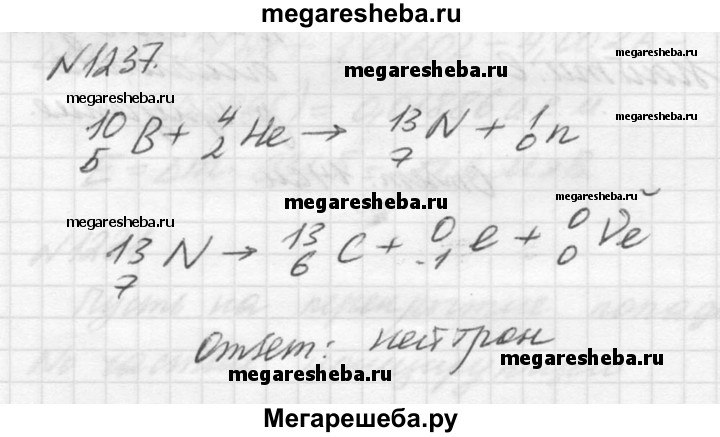 megaresheba.ru
N1237.
megaresheba.ru
megaresheba.ru
¹⁰₅B + ⁴₂He → ¹³₇N + ¹₀n
megaresheba.ru
megaresheba.ru
megaresheba.ru
¹³₇N → ¹³₆C + ⁰₋₁e + ⁰₀νe
Ответ: нейтрон
megaresheba.ru
megaresheba.ru
Мегарешеба.ру